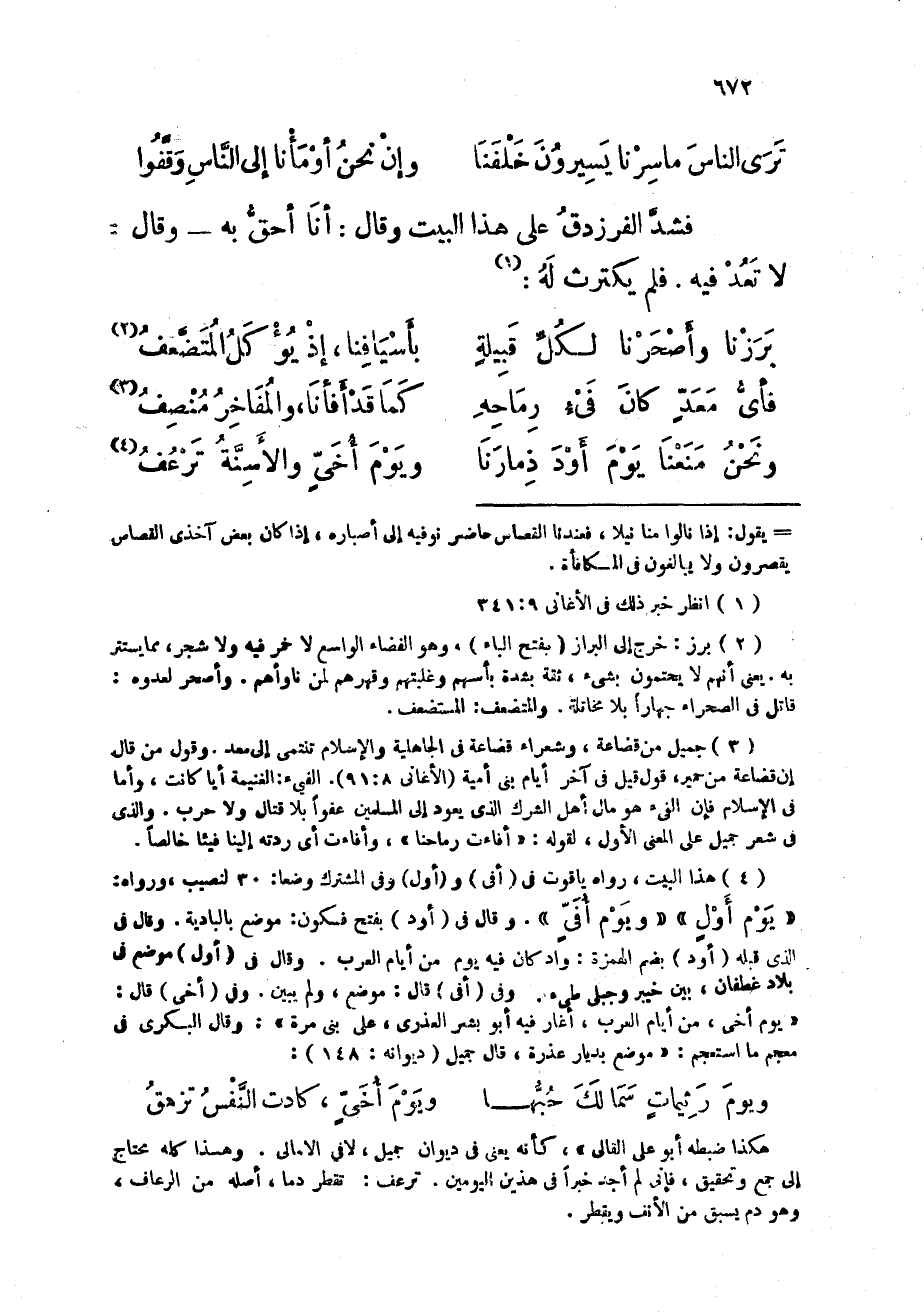 ٦٧٢
تَرَى الناسَ ما سِرْنا يَسِيروُنَ خَلْفَنَا وإنْ نحنُ أوْمَأْنا إلى النَّاسِ وَقَّفُوا
فشدَّ الفرزدقُ على هذا البيت وقال : أنَا أحقُّ به — وقال :
لا تَعُدْ فيه . فلم يكترث لَهُ :(١)
بَرَزْنا وأَصْحَرْنا لـكُلِّ قَبِيلةٍ بأَسْيَافِنا ، إذْ يُؤْكَلُ المُتَضَّعفُ(٢)
فأىُّ مَعَدٍّ كانَ فَىْءَ رِمَاحِهِ كَمَا قَدْ أَفَأنَا، والمُفَاخِرُ مُنْصِفُ(٣)
ونَحْنُ مَنَعْنَا يَوْمَ أَوْدَ ذِمارَنَا ويَوْمَ أُخَيٍّ والأسِنَّةُ تَرْعُفُ(٤)
= يقول : إذا نالوا منا نيلا ، فعندنا القصاس حاضر نوفيه إلى أصباره ، إذا كان بعض آخذى القصاس
يقصرون ولا يبالفون فى المـكافأة .
( ١ ) انظر خبر ذلك فى الأغانى ٩ : ٣٤١
( ٢ ) برز : خرج إلى البراز ( بفتح الباء ) ، وهو الفضاء الواسع لا خمر فيه ولا شجر، مما يستتر
به . يعنى أنهم لا يحتمون بشىء ، ثقة بشدة بأسهم وغلبتهم وقهرهم لمن ناوأهم . وأصحر لعدوه :
قاتل فى الصحراء جهاراً بلا مخاتلة . والمتضعف : المستضعف .
( ٣ ) جميل من قضاعة ، وشعراء قضاعة فى الجاهلية والإسلام تنتمى إلى معد . وقول من قال
إن قضاعة من حمير، قول قيل فى آخر أيام بنى أمية (الأغانى ٨ : ٩١). الفيء : الغنيمة أيا كانت ، وأما
فى الإسلام فإن الفىء هو مال أهل الشرك الذى يعود إلى المسلمين عفواً بلا قتال ولا حرب . والذى
فى شعر جميل على المعنى الأول ، لقوله : « أفاءت رماحنا » ، وأفاءت أى ردته إلينا فيئا خالصاً .
( ٤ ) هذا البيت ، رواه ياقوت فى ( أفى ) و (أول) وفى المشترك وضعا : ٣٠ لنصيب ، ورواه :
« يَوْم أَوْلٍ » « ويَوْم أُفَيٍّ » . وقال فى ( أود ) بفتح فسكون : موضع بالبادية . وقال فى
الذى قبله ( أود ) بضم الهمزة : واد كان فيه يوم من أيام العرب . وقال فى ( أول ) موضع فى
بلاد غطفان ، بين خيبر وجبلى طىء . وفى ( أفى ) قال : موضع ، ولم يبين . وفى ( أخى ) قال :
« يوم أخى ، من أيام العرب ، أغار فيه أبو بشر العذرى ، على بنى مرة » : وقال البكرى فى
معجم ما استعجم : « موضع بديار عذرة ، قال جميل ( ديوانه : ١٤٨ ) :
ويومَ رَثِيماتٍ سَمَا لَكَ حُبُّهـا ويَوْمَ أُخَيٍّ ، كادت النَّفْسُ تزهقُ
هكذا ضبطه أبو على القالى » ، كأنه يعنى فى ديوان جميل ، لافى الامالى . وهـذا كله محتاج
إلى جمع وتحقيق ، فإنى لم أجد خبراً فى هذين اليومين . ترعف : تقطر دما ، أصله من الرعاف ،
وهو دم يسبق من الأنف ويقطر .